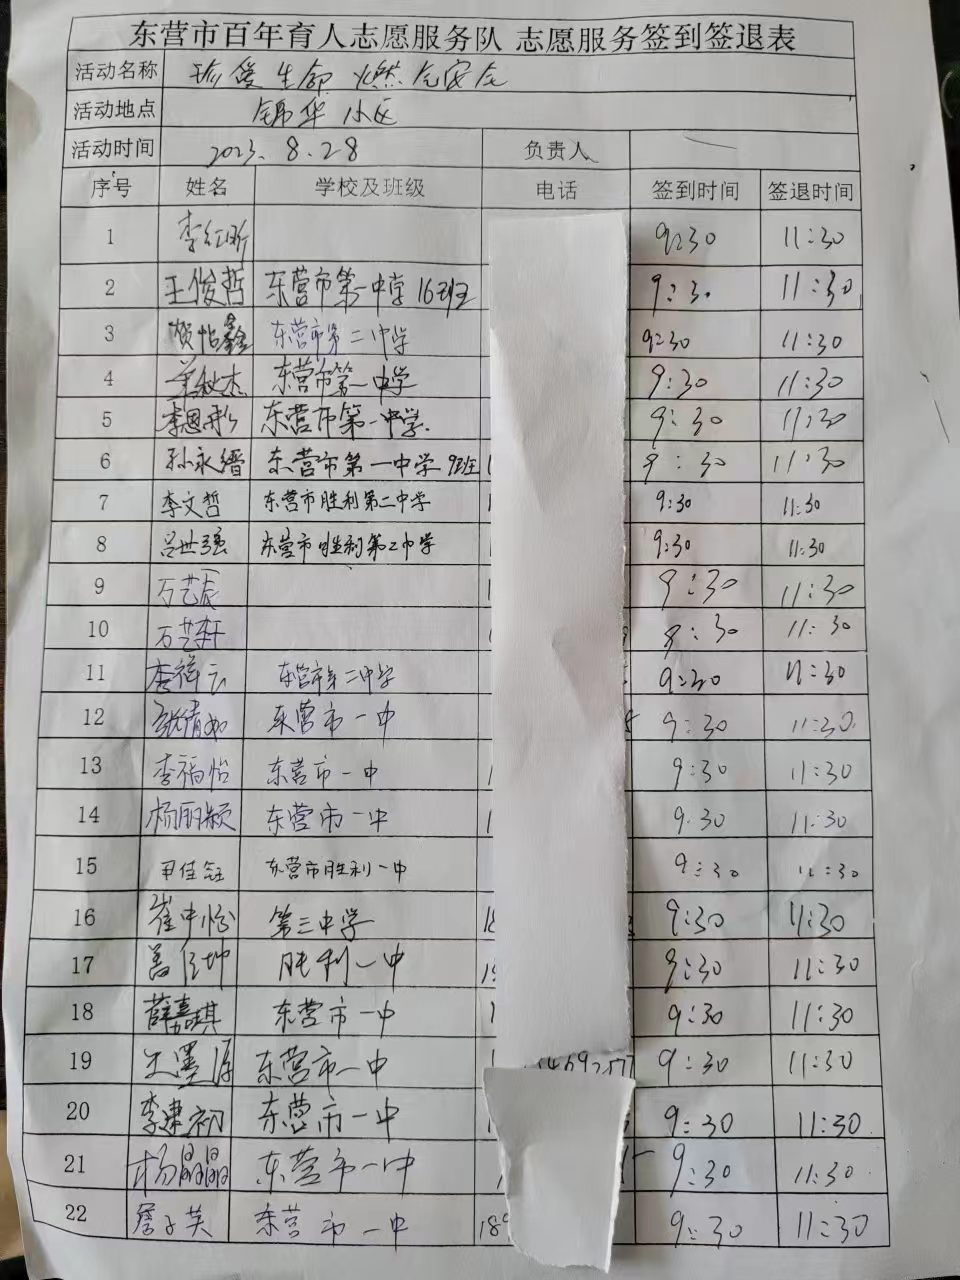 东营市百年育人志愿服务队 志愿服务签到签退表
活动名称 珍爱生命 燃气安全
活动地点 锦华小区
活动时间 2023.8.28 负责人
序号 姓名 学校及班级 电话 签到时间 签退时间
1 李红昕 9:30 11:30
2 王俊哲 东营市第一中学 16班 9:30 11:30
3 贺怡鑫 东营市第二中学 9:30 11:30
4 东营市第一中学 9:30 11:30
5 李恩彤 东营市第一中学. 9:30 11:30
6 孙永缙 东营市第一中学 9班 9:30 11:30
7 李文哲 东营市胜利第二中学 9:30 11:30
8 吕世强 东营市胜利第二中学 9:30 11:30
9 万艺辰 9:30 11:30
10 万艺轩 9:30 11:30
11 李祥云 东营市第二中学 9:30 11:30
12 张倩如 东营市一中 9:30 11:30
13 李福怡 东营市一中 9:30 11:30
14 杨丽颖 东营市一中 9:30 11:30
15 佳钰 东营市胜利一中 9:30 11:30
16 崔中怡 第三中学 9:30 11:30
17 胜利一中 9:30 11:30
18 薛嘉琪 东营市一中 9:30 11:30
19 东营市一中 9:30 11:30
20 李建初 东营市一中 9:30 11:30
21 杨晶晶 东营市一中 9:30 11:30
22 詹子芙 东营市一中 189 9:30 11:30